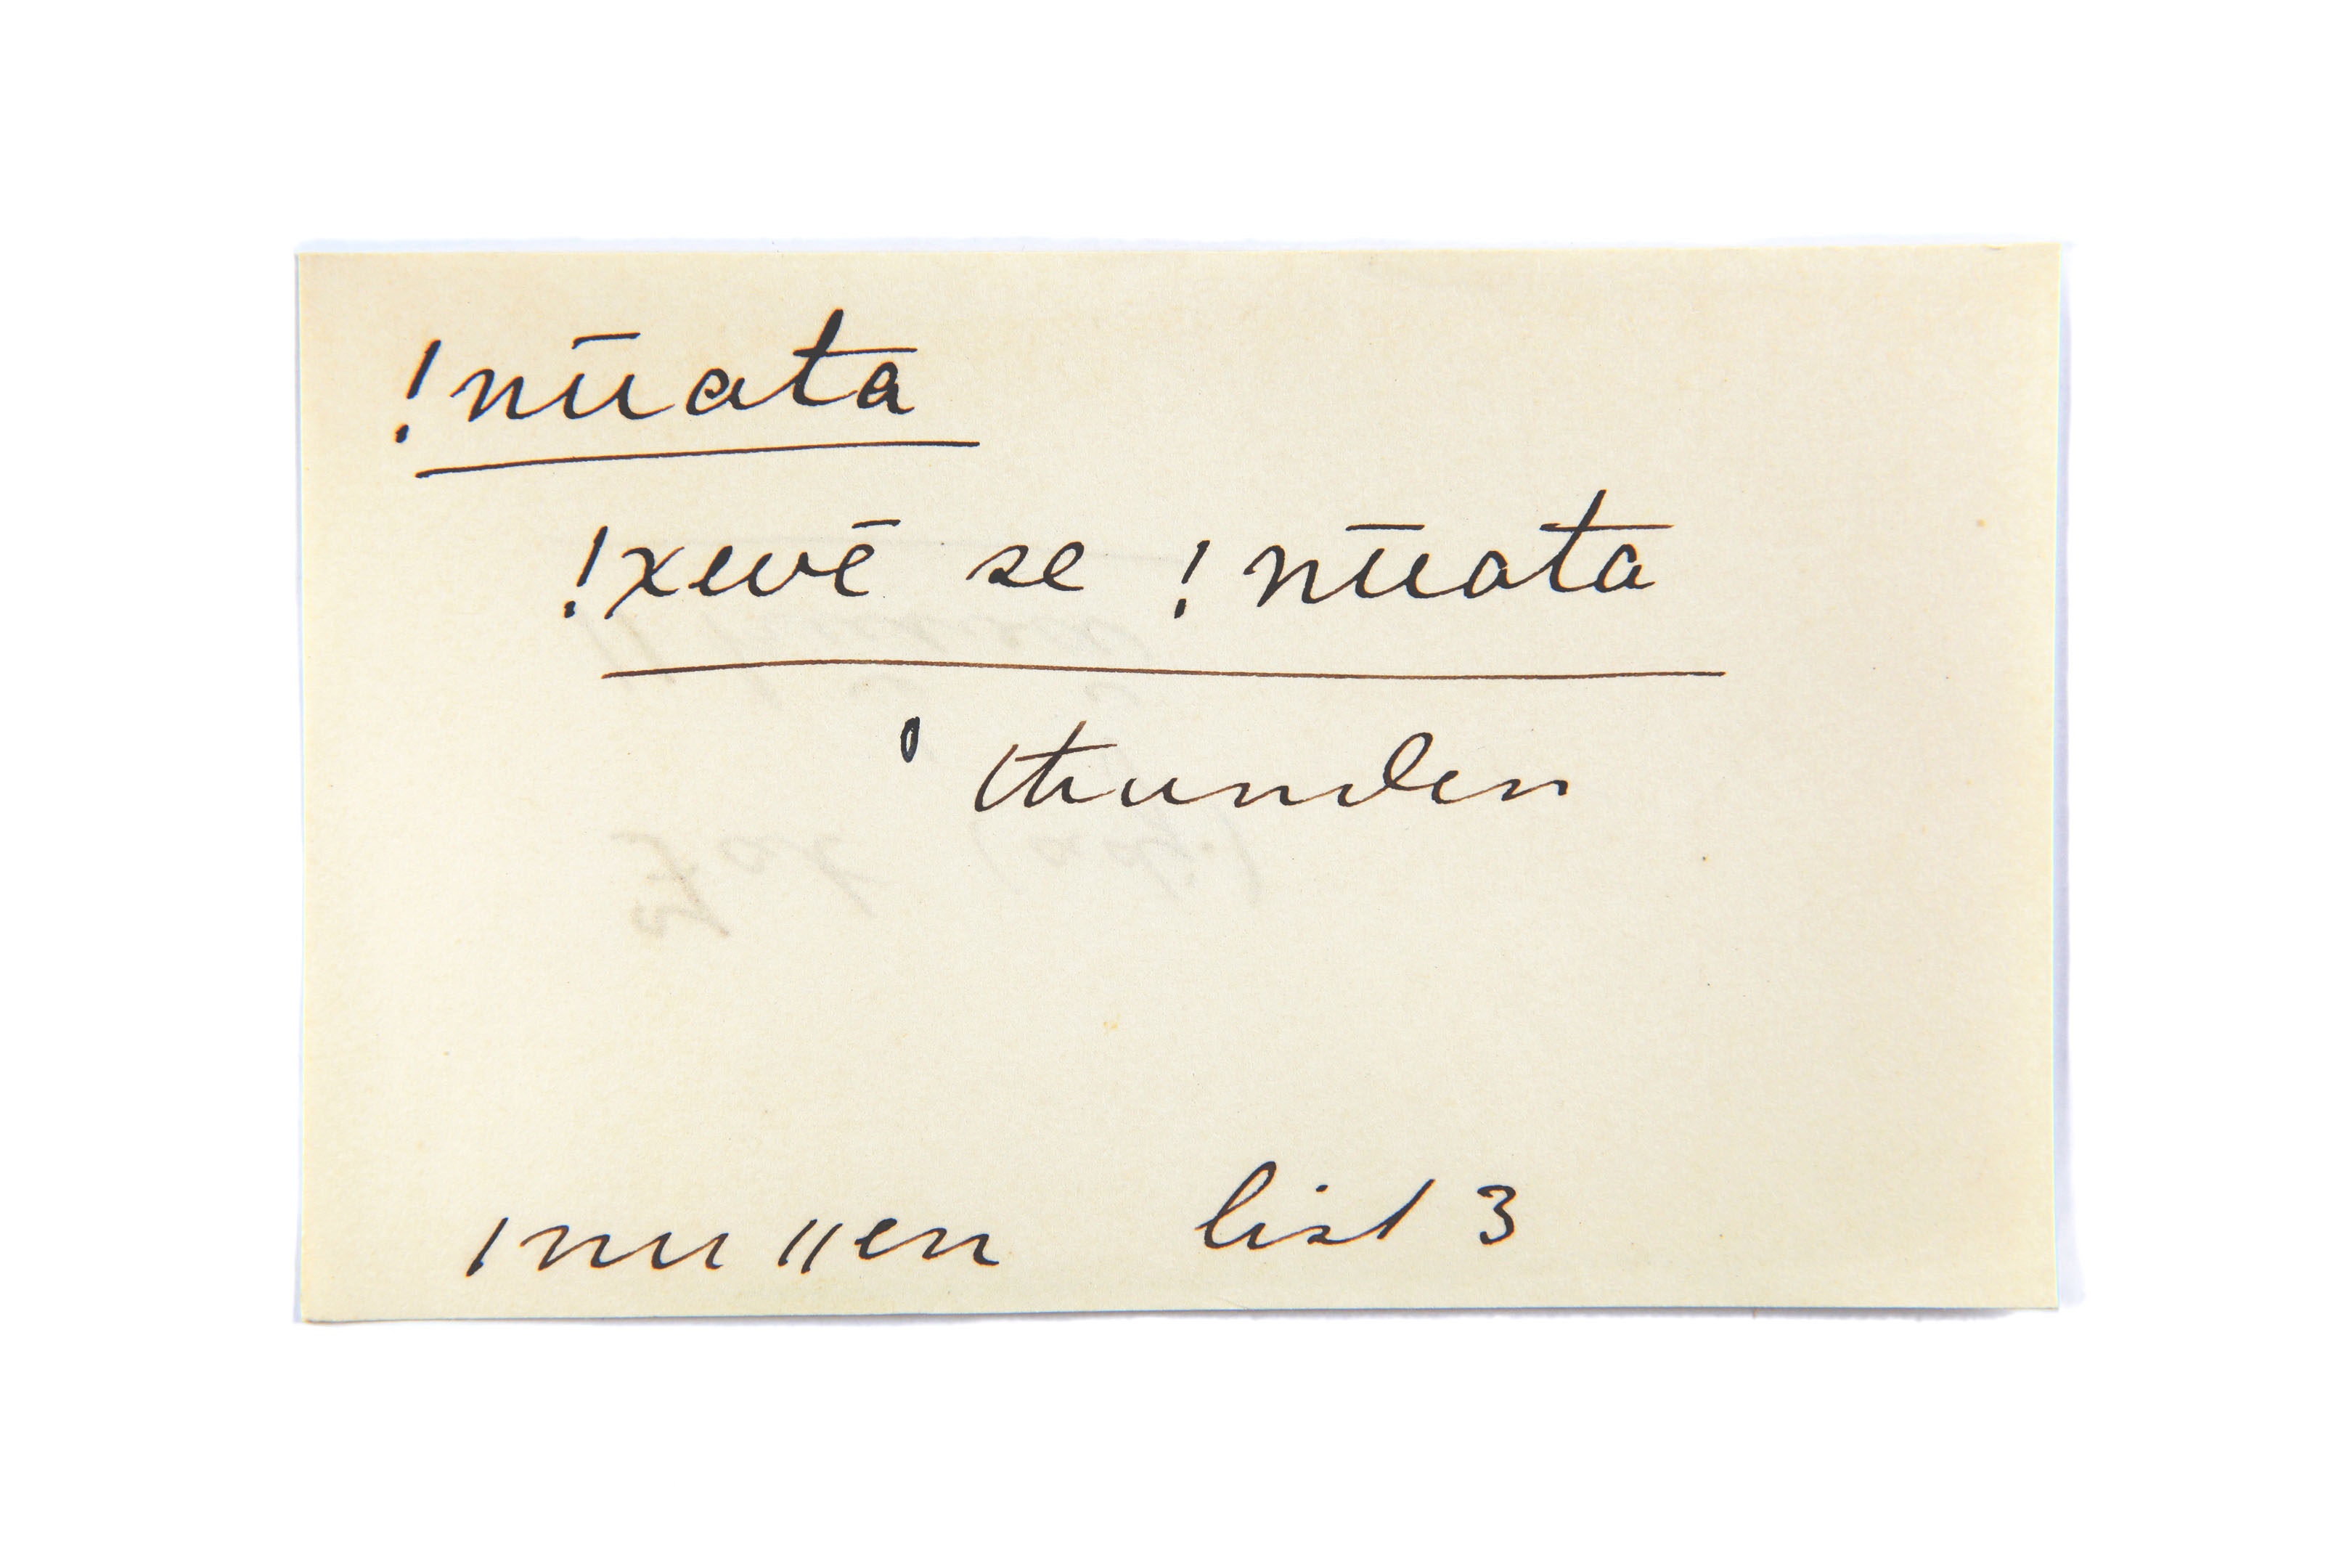 !nūata
!xevē se !nūata
thunder
|nu||en list 3